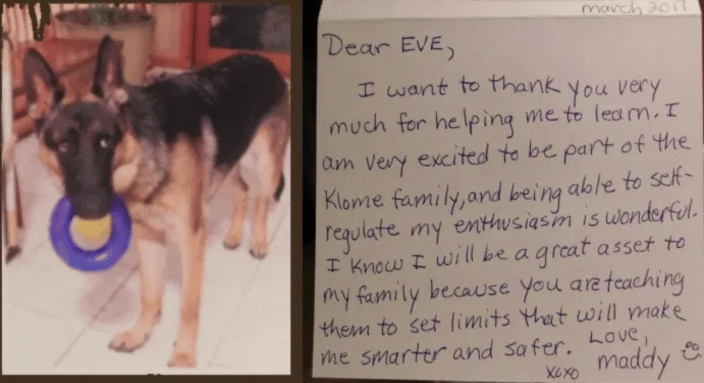 march 2017
Dear EVE,
I want to thank you very
much for helping me to learn. I
am very excited to be part of the
Klome family, and being able to self-
regulate my enthusiasm is wonderful.
I know I will be a great asset to
my family because you are teaching
them to set limits that will make
me smarter and safer. Love,
xoxo maddy